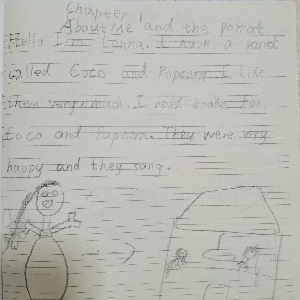 Chapter 1
About me and the parrot
Hello I am Lunna. I have a parrot
called Coco and Popcorn. I like
them very much. I read books for
CoCo and Popcorn. They were very
happy and they sang.